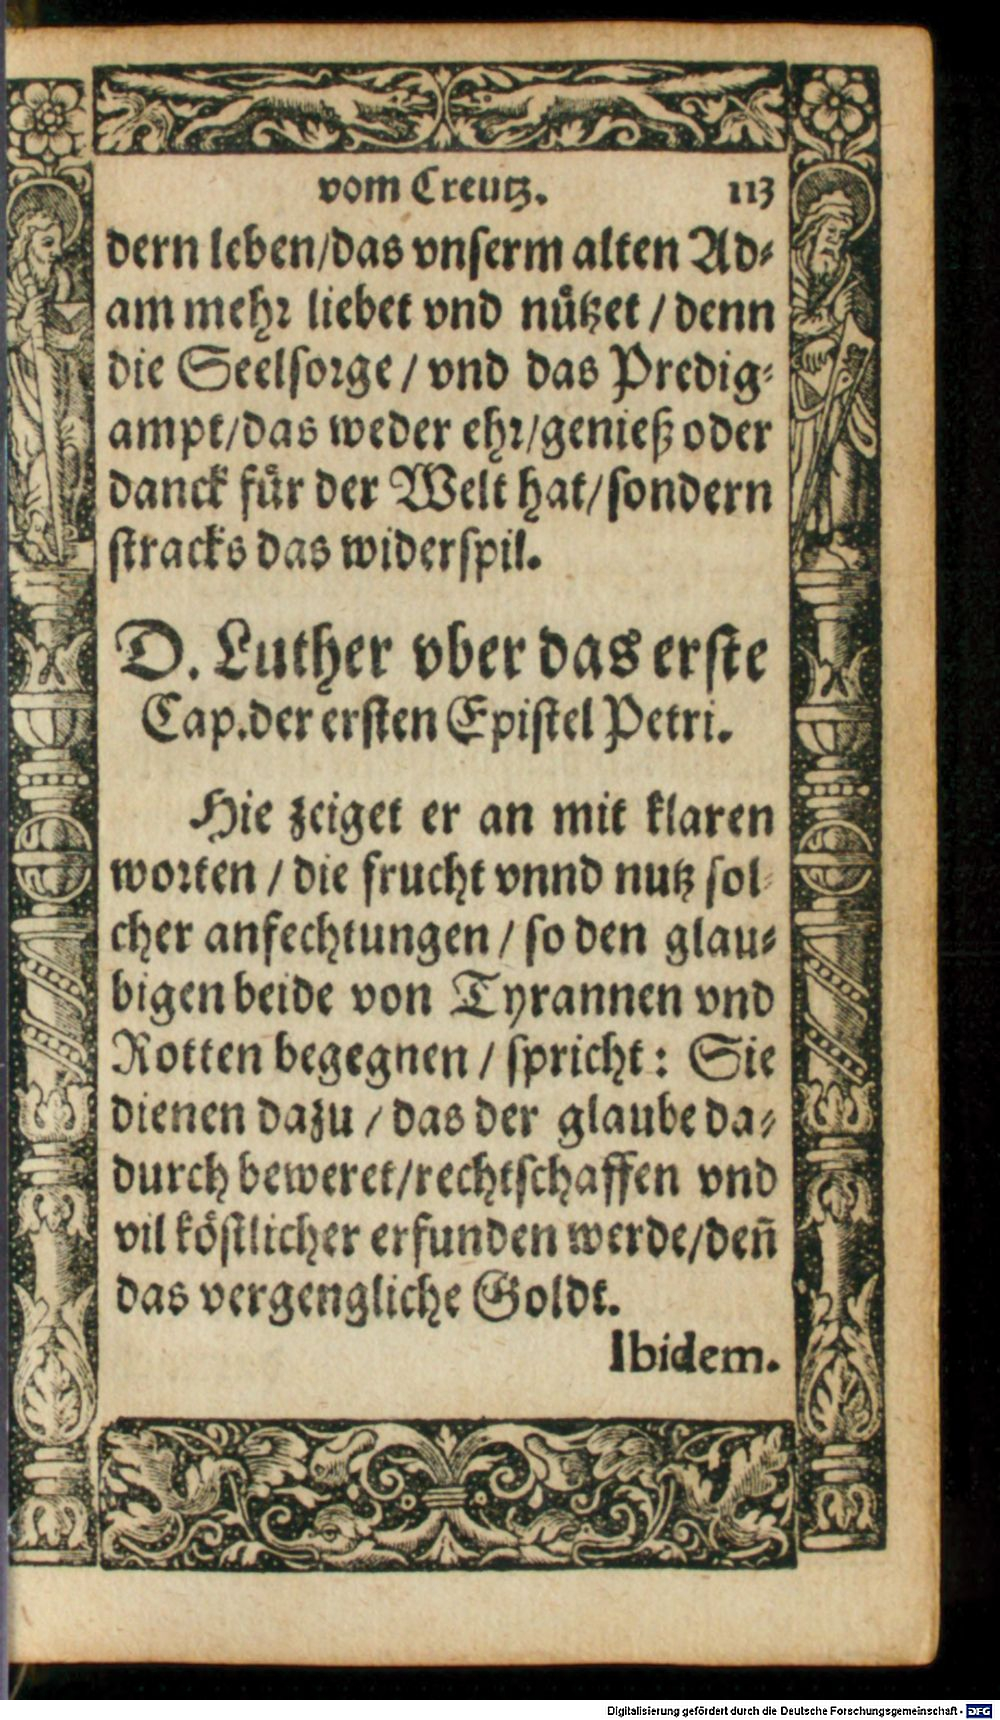 vom Creutz. 113
dern leben/das vnſerm alten Ad⸗
am mehꝛ liebet vnd nuͤtzet / denn
die Seelſoꝛge / vnd das Predig⸗
ampt/das weder ehꝛ/genieß oder
danck fuͤr der Welt hat/ſondern
ſtracks das widerſpil.
D. Luther vber das erſte
Cap.der erſten Epiſtel Petri.
Hie zeiget er an mit klaren
woꝛten / die frucht vnnd nutz ſol⸗
cher anfechtungen / ſo den glau⸗
bigen beide von Tyrannen vnd
Rotten begegnen / ſpricht: Sie
dienen dazu / das der glaube da⸗
durch beweret/rechtſchaffen vnd
vil koͤſtlicher erfunden werde/deñ
das vergengliche Goldt.
Ibidem.
Digitalisierung gefördert durch die Deutsche Forschungsgemeinschaft - DFG